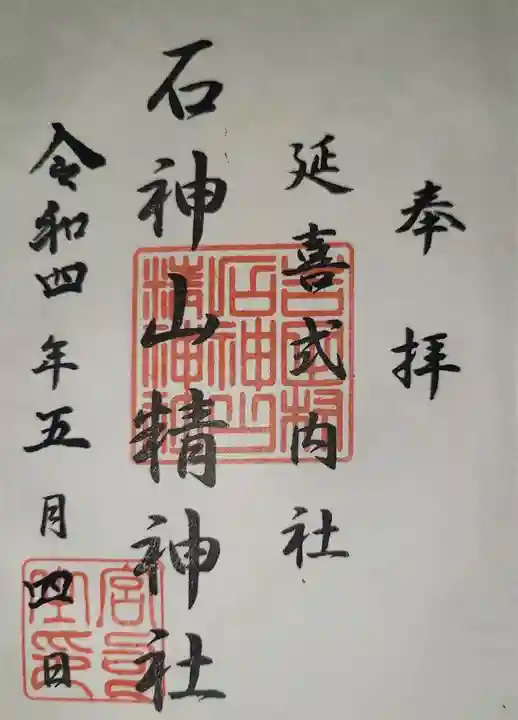 奉拝
延喜式内社
石神山精神社
令和四年五月四日
吉田村
石神山
精神社